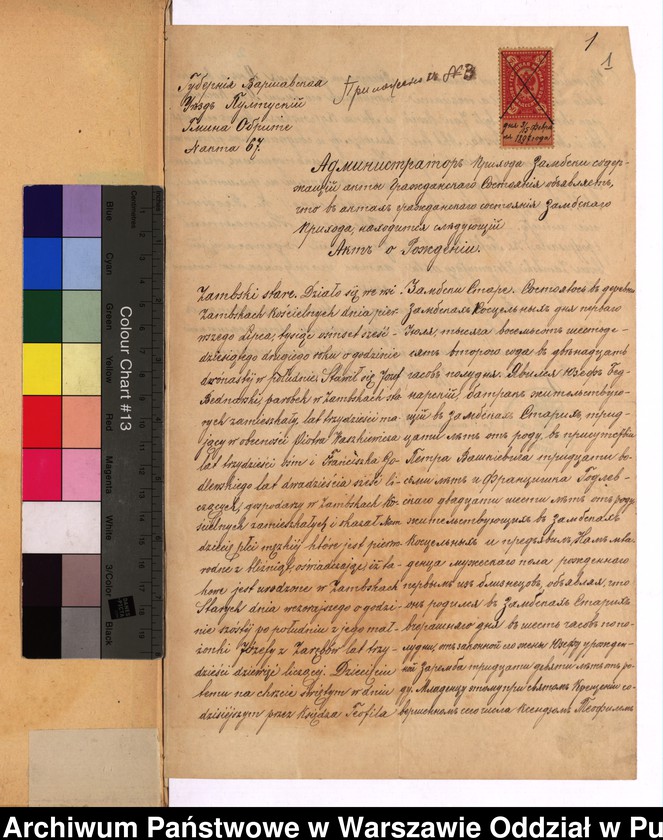 1
1
Губернія Варшавская
Уѣздъ Пултускій
Гмина Обрыте
№ акта 67.
Приложеніе №3
дня 3/15 Февра
ля 1898 года
Администраторъ Прихода Замбски содер-
жащій акты Гражданскаго Состоянія объявляетъ,
что въ актахъ гражданскаго состоянія Замбскаго
Прихода, находится слѣдующій
Актъ о Рожденіи.
Zambski stare. Działo się we wsi
Zambskach Kościelnych dnia pier-
wszego Lipca, tysiąc ośmset sześć-
dziesiątego drugiego roku o godzinie
dwónastej w południe. Stawił się Józef
Bednarski, parobek w Zambskach sta-
rych zamieszkały, lat trzydzieści ma-
jący w obecności Piotra Waszkiewicza
lat trzydzieści ośm i Franciszka Go-
dlewskiego lat dwadzieścia sześć li-
czących, gospodarzy w Zambskach Ko-
ścielnych zamieszkałych i okazał Nam
dziecię płci męzkiej które jest pierw-
rodne z bliźniąt, oświadczając iż ta-
kowe jest urodzone w Zambskach
Starych dnia wczorajszego o godzi-
nie szóstej po południu z jego mał-
żonki Józefy z Zarębów lat trzy-
dzieści dziewięć liczącej. Dziecięciu
temu na chrzcie świętym w dniu
dzisiejszym przez Księdza Teofila
Замбски Старе. Состоялось въ деревнѣ
Замбскахъ Косцельныхъ дня перваго
Іюля, тысяча восемьсотъ шестьде-
сятъ второго года въ двѣнадцать
часовъ полудня. Явился Юзефъ Бед-
нарскій, батракъ жительствую-
щій въ Замбскахъ Старыхъ, трид-
цати лѣтъ отъ роду, въ присутствіи
Петра Вашкевича тридцати во-
семи лѣтъ и Францишка Годлев-
скаго двадцати шести лѣтъ отъ роду
жительствующихъ въ Замбскахъ
Косцельныхъ и предъявилъ Намъ мла-
денца мужескаго пола рожденнаго
первымъ изъ близнецовъ, объявляя, что
онъ родился въ Замбскахъ Старыхъ
вчерашняго дня въ шесть часовъ попо-
лудни, отъ законной его жены Юзефы урожден-
ной Заремба тридцати девяти лѣтъ отъ ро-
ду. Младенцу этому при святомъ Крещеніи со-
вершенномъ сего числа Ксендзомъ Теофилемъ
Colour Chart #13
Blue
Cyan
Green
Yellow
Red
Magenta
White
3/Color
Black
Centimetres
1
2
3
4
5
6
7
8
9
10
11
12
13
14
15
16
17
18
19
Archiwum Państwowe w Warszawie Oddział w Pu